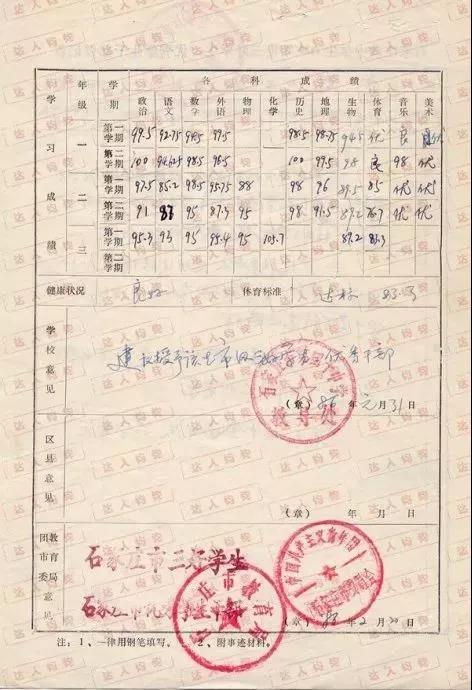 学习成绩 年级 学期 各科成绩
政治 语文 数学 外语 物理 化学 历史 地理 生物 体育 音乐 美术
一 第一学期 97.5 92.75 97.5 98.5 98.75 94.5 优 良
第二学期 100 94.625 98.5 96.5 100 97.5 98 良 98 优
二 第一学期 97.5 85.2 98.5 95.75 88 98 96 85 优 优
第二学期 91 87 95 87.3 95 98 91.5 87.2 76.7 优 优
三 第一学期 95.3 93 95 95.4 95 103.7 87.2 83.3
第二学期
健康状况 良好 体育标准 达标
学校意见
建议授予该生市级三好学生 优秀干部
(章) 86年元月31日
区县意见
(章) 年 月 日
团市委 教育局意见
石家庄市三好学生
石家庄市
石家庄市教育局
中国共产主义青年团
(章) 年2月20日
注:1、一律用钢笔填写。 2、附事迹材料。
达人钩瓷